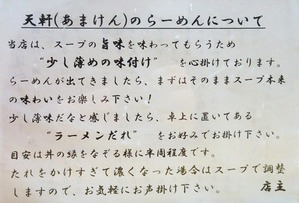 天軒(あまけん)のらーめんについて
当店は、スープの旨味を味わってもらうため
"少し薄めの味付け" を心掛けております。
らーめんが出てきましたら、まずはそのままスープ本来
の味わいをお楽しみ下さい！
少し薄味だなと感じましたら、卓上に置いてある
"ラーメンだれ" をお好みでお掛け下さい。
目安は丼の縁をなぞる様に半周程度です。
たれをかけすぎて濃くなった場合はスープで調整
しますので、お気軽にお声掛け下さい。 店主